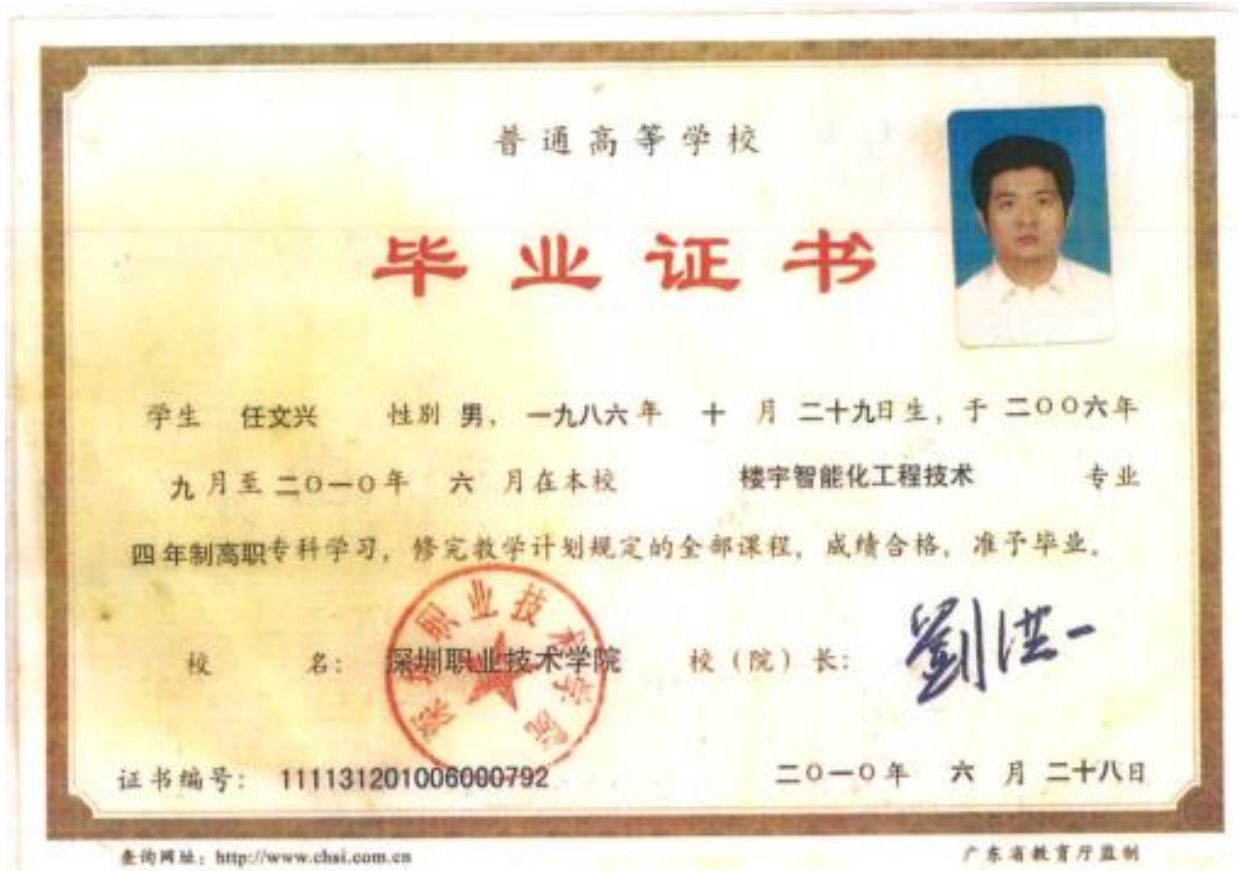 普通高等学校
毕业证书
学生 任文兴 性别 男、一九八六年 十 月 二十九日生，于 二〇〇六年
九 月至 二〇一〇年 六 月在本校 楼宇智能化工程技术 专业
四年制高职专科学习，修完教学计划规定的全部课程，成绩合格，准予毕业。
校 名： 深圳职业技术学院 校（院）长： 劉洪一
深圳职业技术学院
证书编号： 111131201006000792 二〇一〇年 六 月 二十八日
查询网址：http://www.chsi.com.cn 广东省教育厅监制